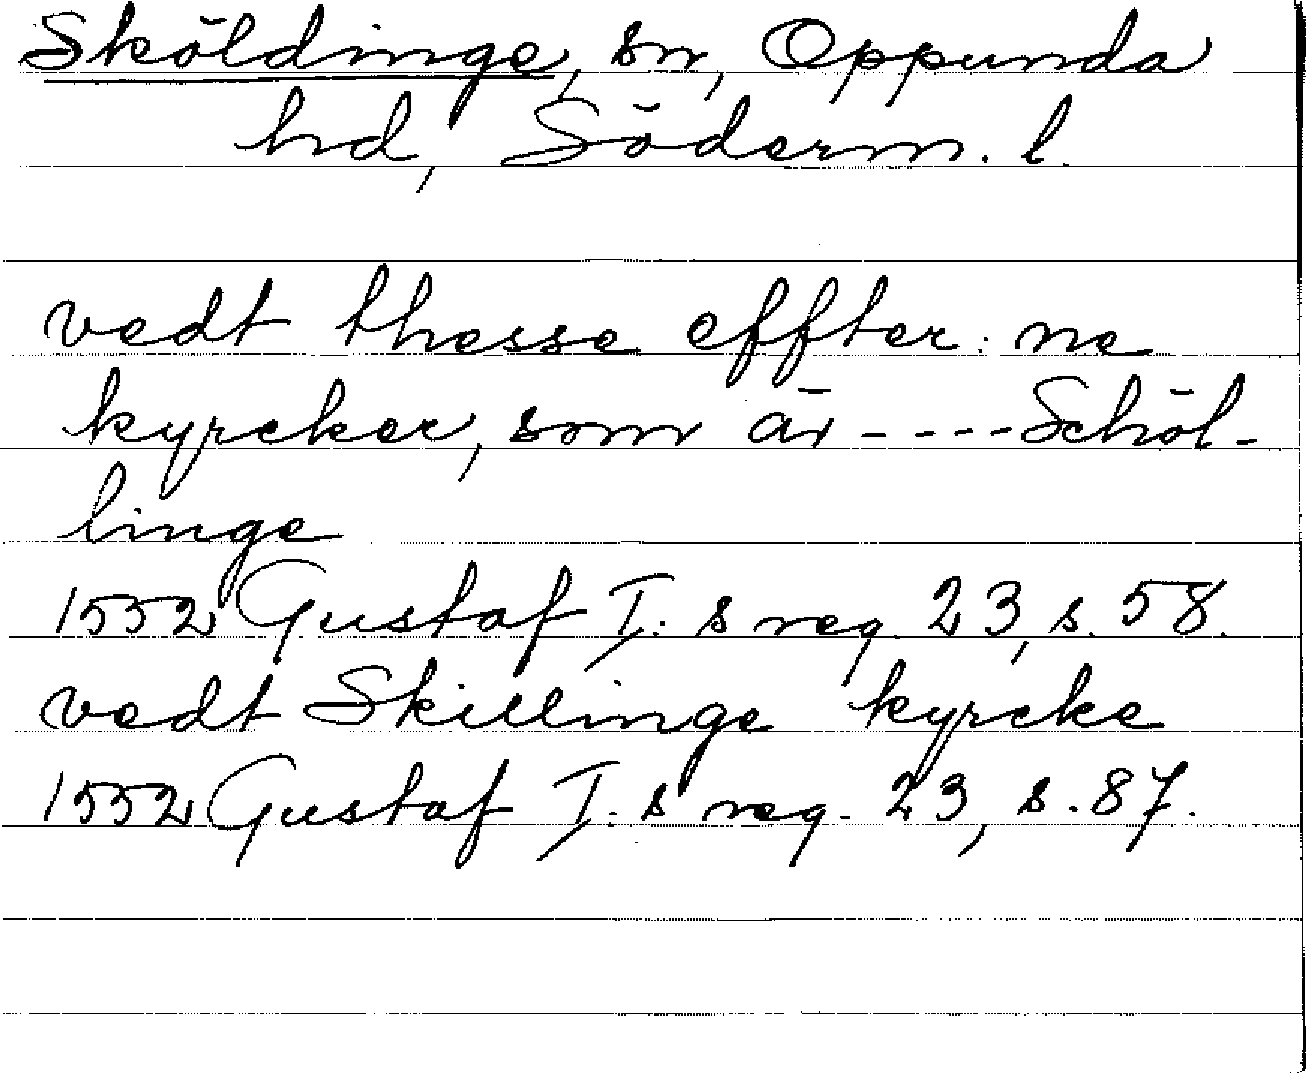 Sköldinge, sn, Oppunda
hd, Söderm. l.
vedt thesse effter: ne
kyrcker, som är ---- Schöl-
linge
1552 Gustaf I: s reg. 23, s. 58.
vedt Skillinge kyrcke
1552 Gustaf I: s reg. 23, s. 87.